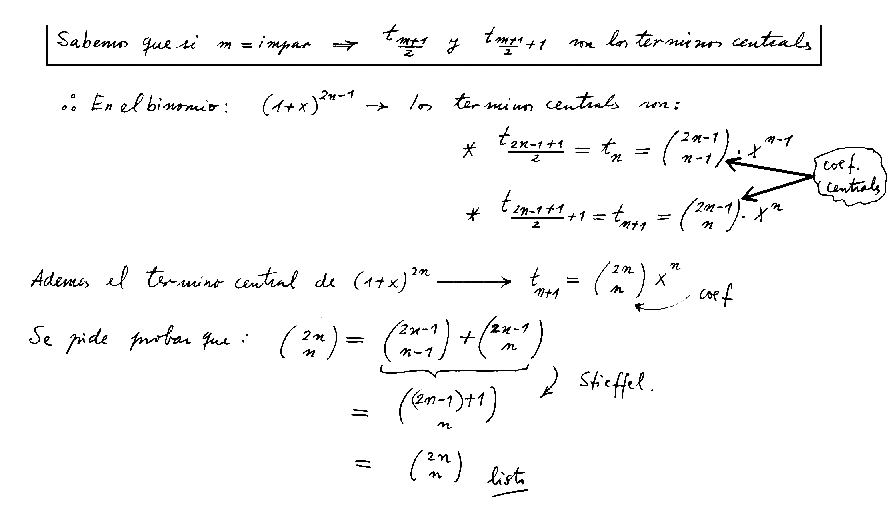 Sabemos que si m = impar ⇒ t_{\frac{m+1}{2}} y t_{\frac{m+1}{2}+1} son los terminos centrals
∴ En el binomio: (1+x)^{2n-1} → los terminos centrals son:
* t_{\frac{2n-1+1}{2}} = t_n = \binom{2n-1}{n-1} · x^{n-1}
coef. centrals
* t_{\frac{2n-1+1}{2}+1} = t_{n+1} = \binom{2n-1}{n} · x^n
Ademas el termino central de (1+x)^{2n} → t_{n+1} = \binom{2n}{n} x^n
coef
Se pide probar que: \binom{2n}{n} = \binom{2n-1}{n-1} + \binom{2n-1}{n}
Stieffel.
= \binom{(2n-1)+1}{n}
= \binom{2n}{n} listo